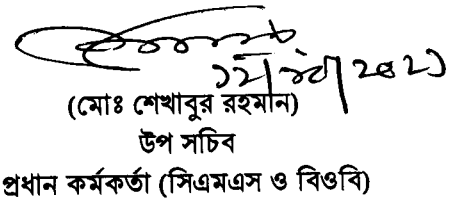 (মোঃ শেখাবুর রহমান)
উপ সচিব
প্রধান কর্মকর্তা (সিএমএস ও বিওবি)